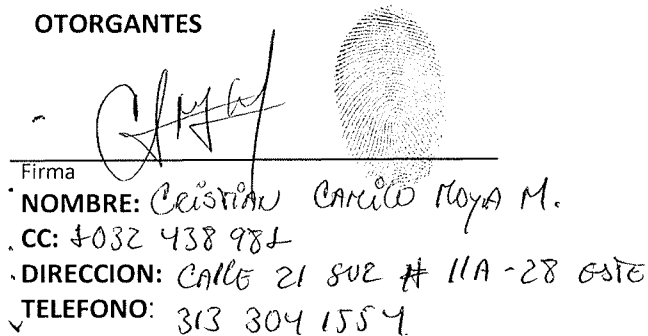 OTORGANTES
Firma
NOMBRE: CRISTIAN CAMILO MOYA M.
CC: 1032 438 981
DIRECCION: CALLE 21 SUR # 11A-28 ESTE
TELEFONO: 313 304 1554